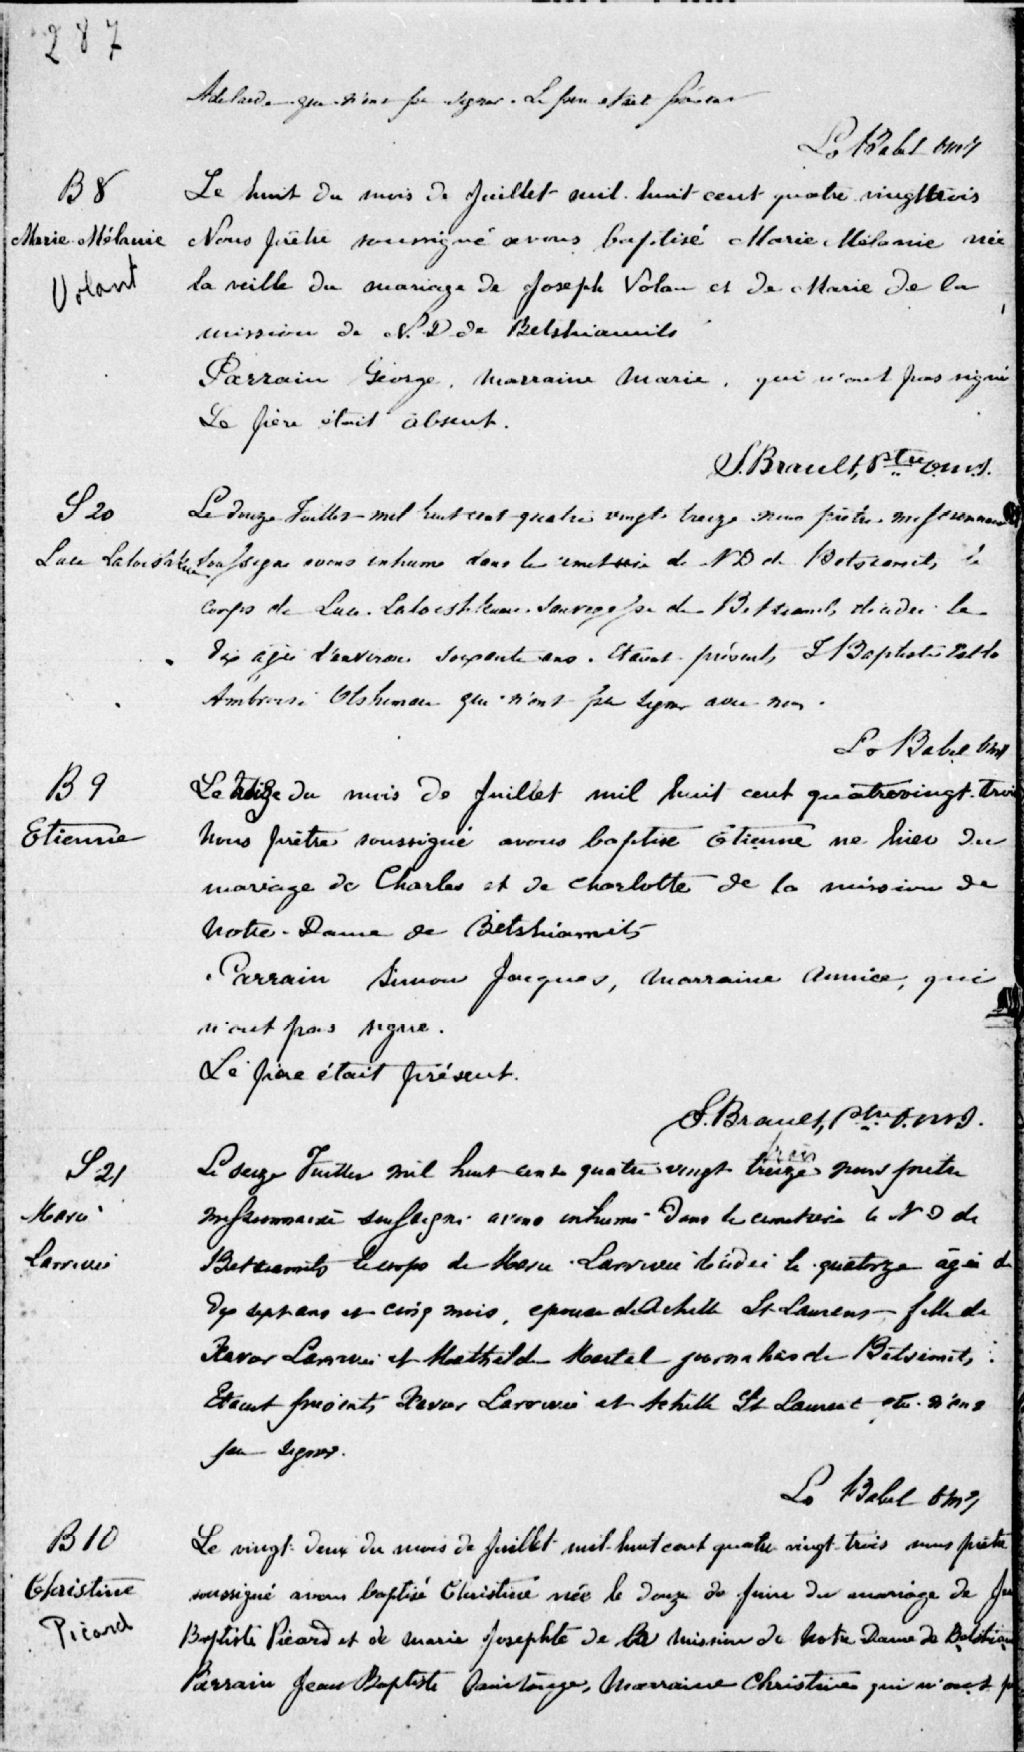 287
Adelaide qui n'ont pu signer. Le père était présent
Ls Babel omi
B 8
Marie Mélanie
Volant
Le huit du mois de Juillet mil huit cent quatre vingt trois
Nous prêtre soussigné avons baptisé Marie Mélanie née
la veille du mariage de Joseph Volan et de Marie de la
mission de N. D de Betshiamits
Parrain George, marraine Marie, qui n'ont pas signé
Le père était absent.
S. Brault, Ptre o.m.i.
S 20
Luce
Le douze Juillet mil huit cent quatre vingt treize nous prêtre missionnaire
soussigné avons inhumé dans le cimetière de N D de Betsiamits le
corps de Luce sauvagesse de Betsiamits décédée le
dix agée d'environ soixante ans. Etaient présents J Baptiste
Ambroise qui n'ont pu signer avec nous.
Ls Babel omi
B 9
Etienne
Le treize du mois de Juillet mil huit cent quatrevingt-trois
Nous prêtre soussigné avons baptisé Etienne né hier du
mariage de Charles et de Charlotte de la mission de
Notre-Dame de Betshiamits
Parrain Simon Jacques, marraine Annice, qui
n'ont pas signé.
Le père était présent.
S. Brault, Ptre o.m.i.
S 21
Marie
Larrivée
Le seize Juillet mil huit cent quatre vingt treize trois nous prêtre
missionnaire soussigné avons inhumé dans le cimetière de N D de
Betsiamits le corps de Marie Larrivée décédée le quatorze âgée de
dix sept ans et cinq mois, epouse de Achille St Laurent fille de
Xavier Larrivée et Mathilde Martel journalier de Betsiamits.
Etaient présents Xavier Larrivée et Achille St Laurent qui n'ont
pu signer.
Ls Babel omi
B 10
Christine
Picard
Le vingt-deux du mois de Juillet mil-huit cent quatre vingt-trois nous prêtre
soussigné avons baptisé Christine née le douze de Juin du mariage de
Baptiste Picard et de Marie Josephte de la Mission de Notre Dame de
Parrain Jean Baptiste, Marraine Christine qui n'ont